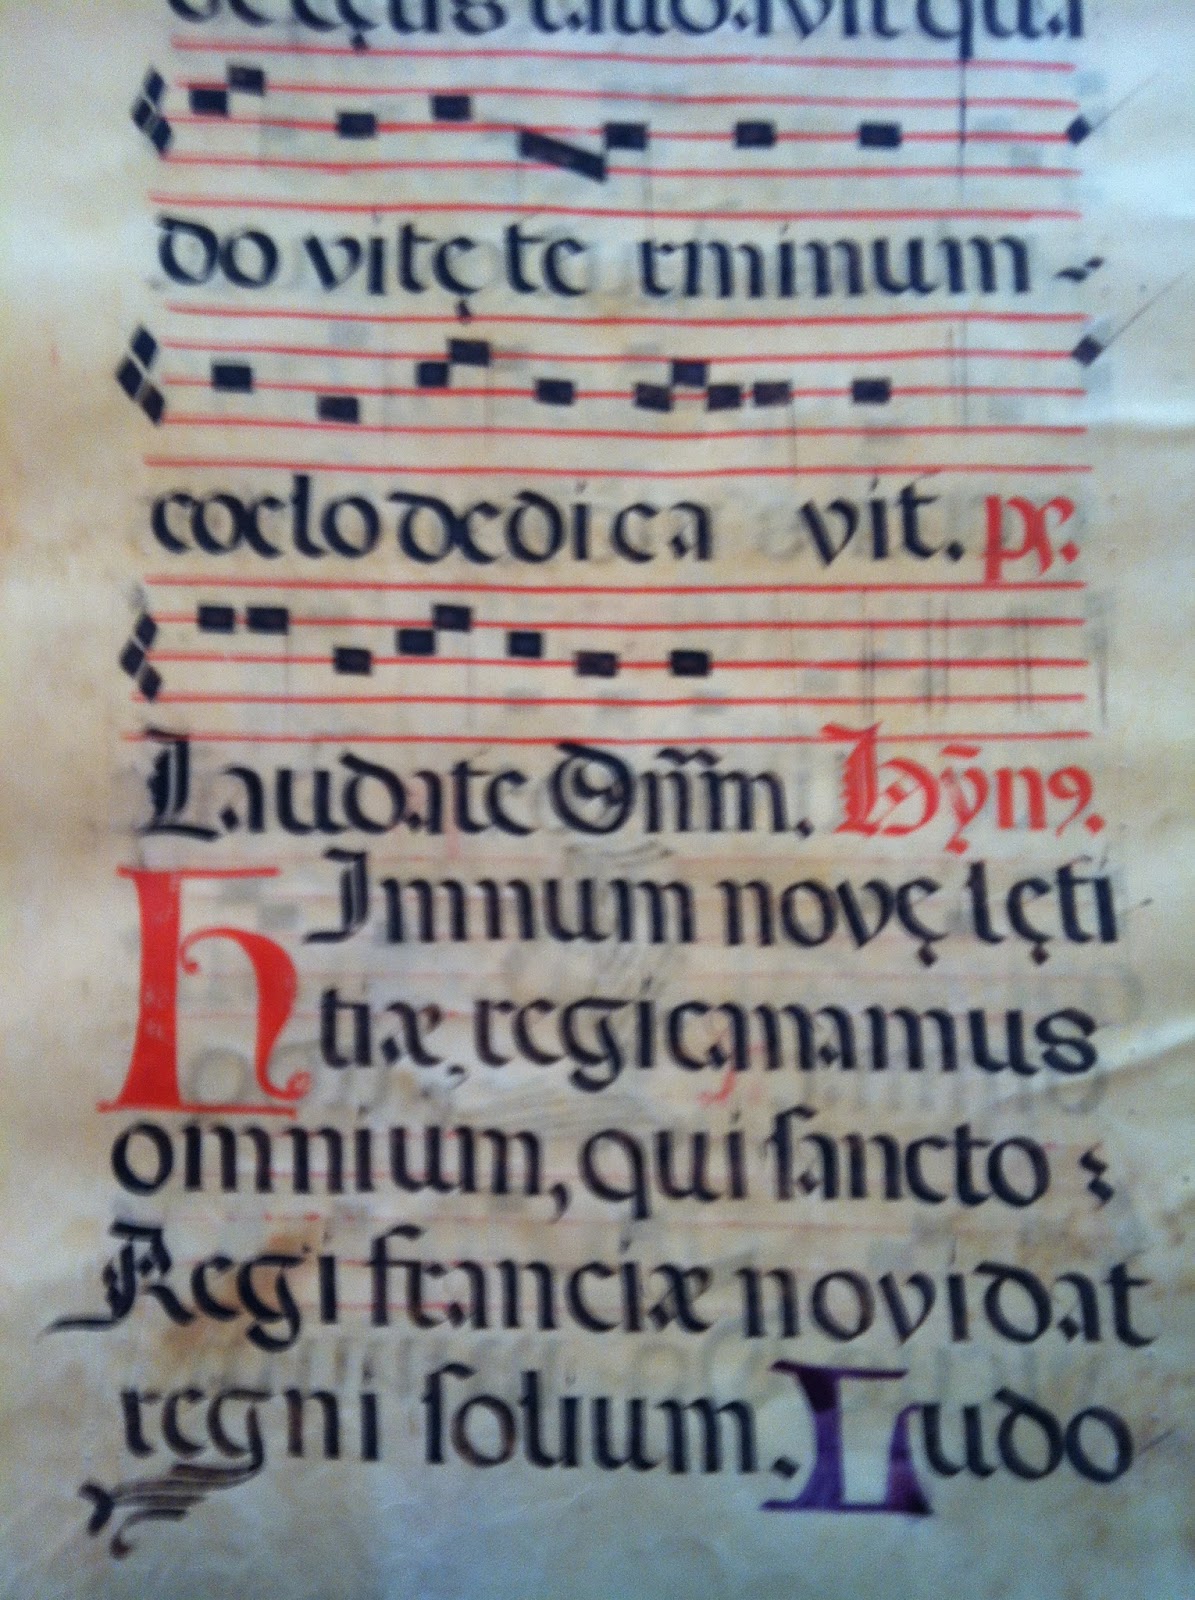 laudavit qua
do vitę te rminum
coelo dedica vit. ps.
Laudate Dñm. Hỹnꝰ.
hImnum novę lęti
tiæ, regi canamus
omnium, qui sancto
Regi franciæ novi dat
regni solium. Ludo